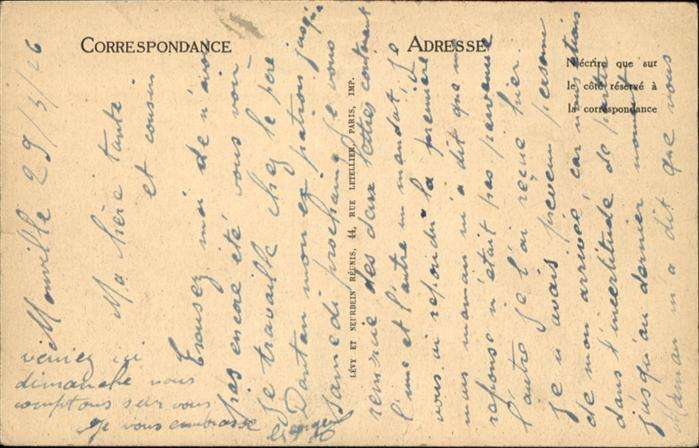 CORRESPONDANCE
ADRESSE
N'écrire que sur
le côté réservé à
la correspondance
LÉVY ET NEURDEIN RÉUNIS, 44, RUE LETELLIER, PARIS, IMP.
Monville 29/3/26
Ma chère tante
et cousin
Excusez moi de n'avoir
pas encore été vous voir
je travaille chez le père
Dantan mon ex patron jusqu'à
samedi prochain. Je vous
remercie des deux lettres contenant
l'une et l'autre un mandat, je
vous ai repondu la première
mais maman m'a dit que ma
reponse n'était pas parvenue
l'autre je l'ai reçue hier.
Je n'avais prevenu personne
de mon arrivée, car nous étions
dans l'incertitude de partir
jusqu'au dernier moment
Maman m'a dit que vous
veniez ici
dimanche nous
comptons sur vous
Je vous embrasse